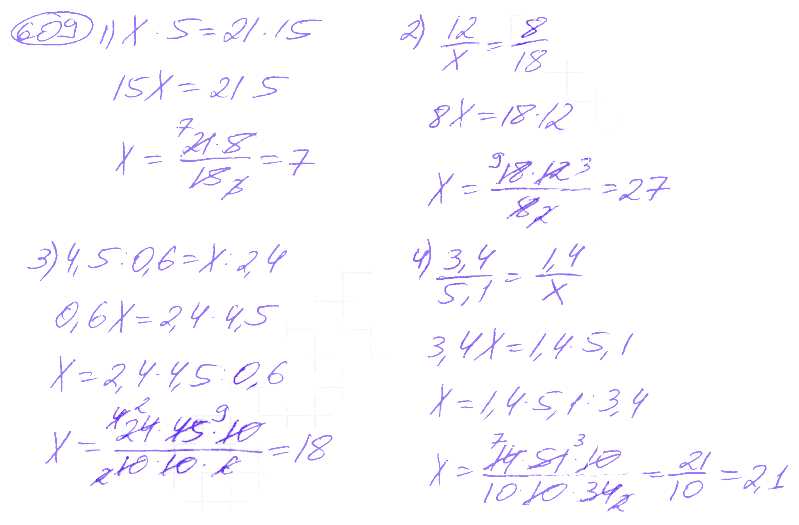 609 1) X · 5 = 21 · 15
15X = 21 5
X = 21·8 / 15 = 7
2) 12/X = 8/18
8X = 18·12
X = 18·12 / 8 = 27
3) 4,5:0,6=X:2,4
0,6X=2,4·4,5
X=2,4·4,5:0,6
X = 24·45·10 / 10·10·6 = 18
4) 3,4/5,1 = 1,4/X
3,4X=1,4·5,1
X=1,4·5,1:3,4
X = 14 51·10 / 10·10·34 = 21/10 = 2,1